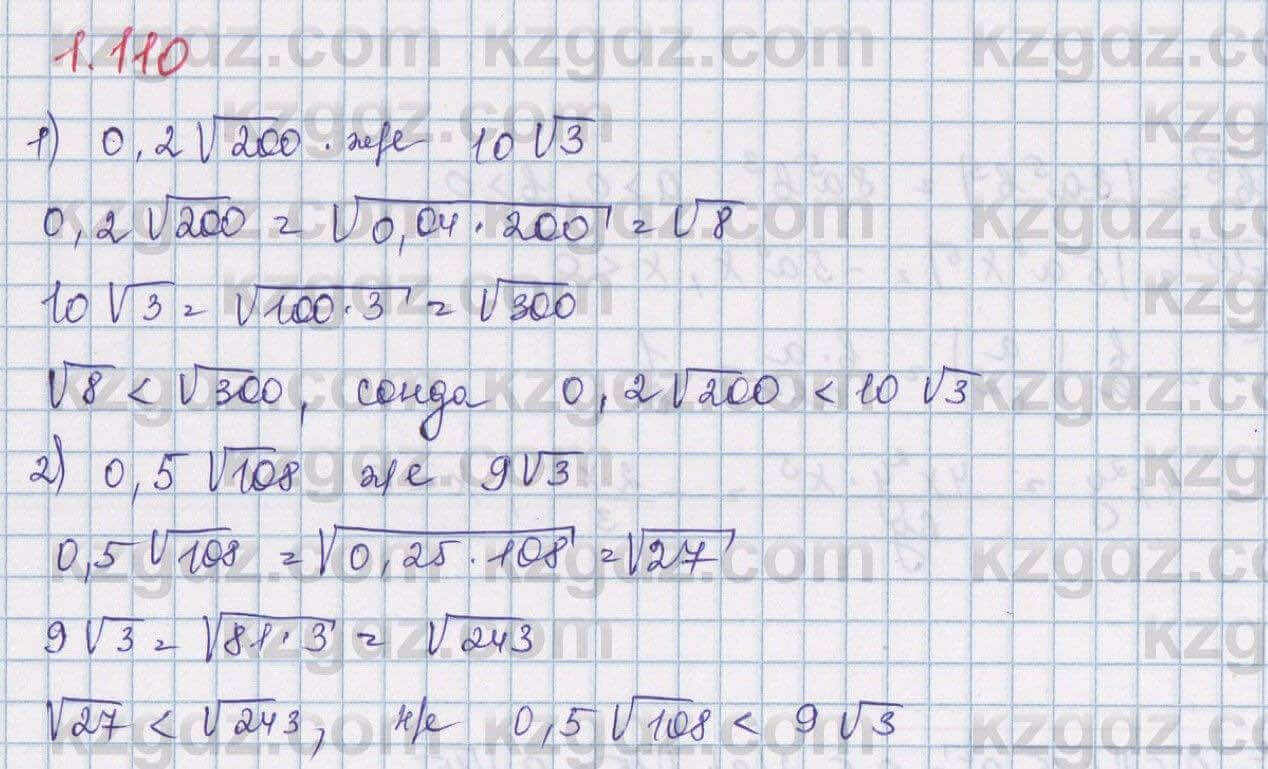 1.110
1) 0,2√200 · және 10√3
0,2√200 = √0,04·200 = √8
10√3 = √100·3 = √300
√8 < √300, сонда 0,2√200 < 10√3
2) 0,5√108 және 9√3
0,5√108 = √0,25·108 = √27
9√3 = √81·3 = √243
√27 < √243, және 0,5√108 < 9√3
kzgdz.com